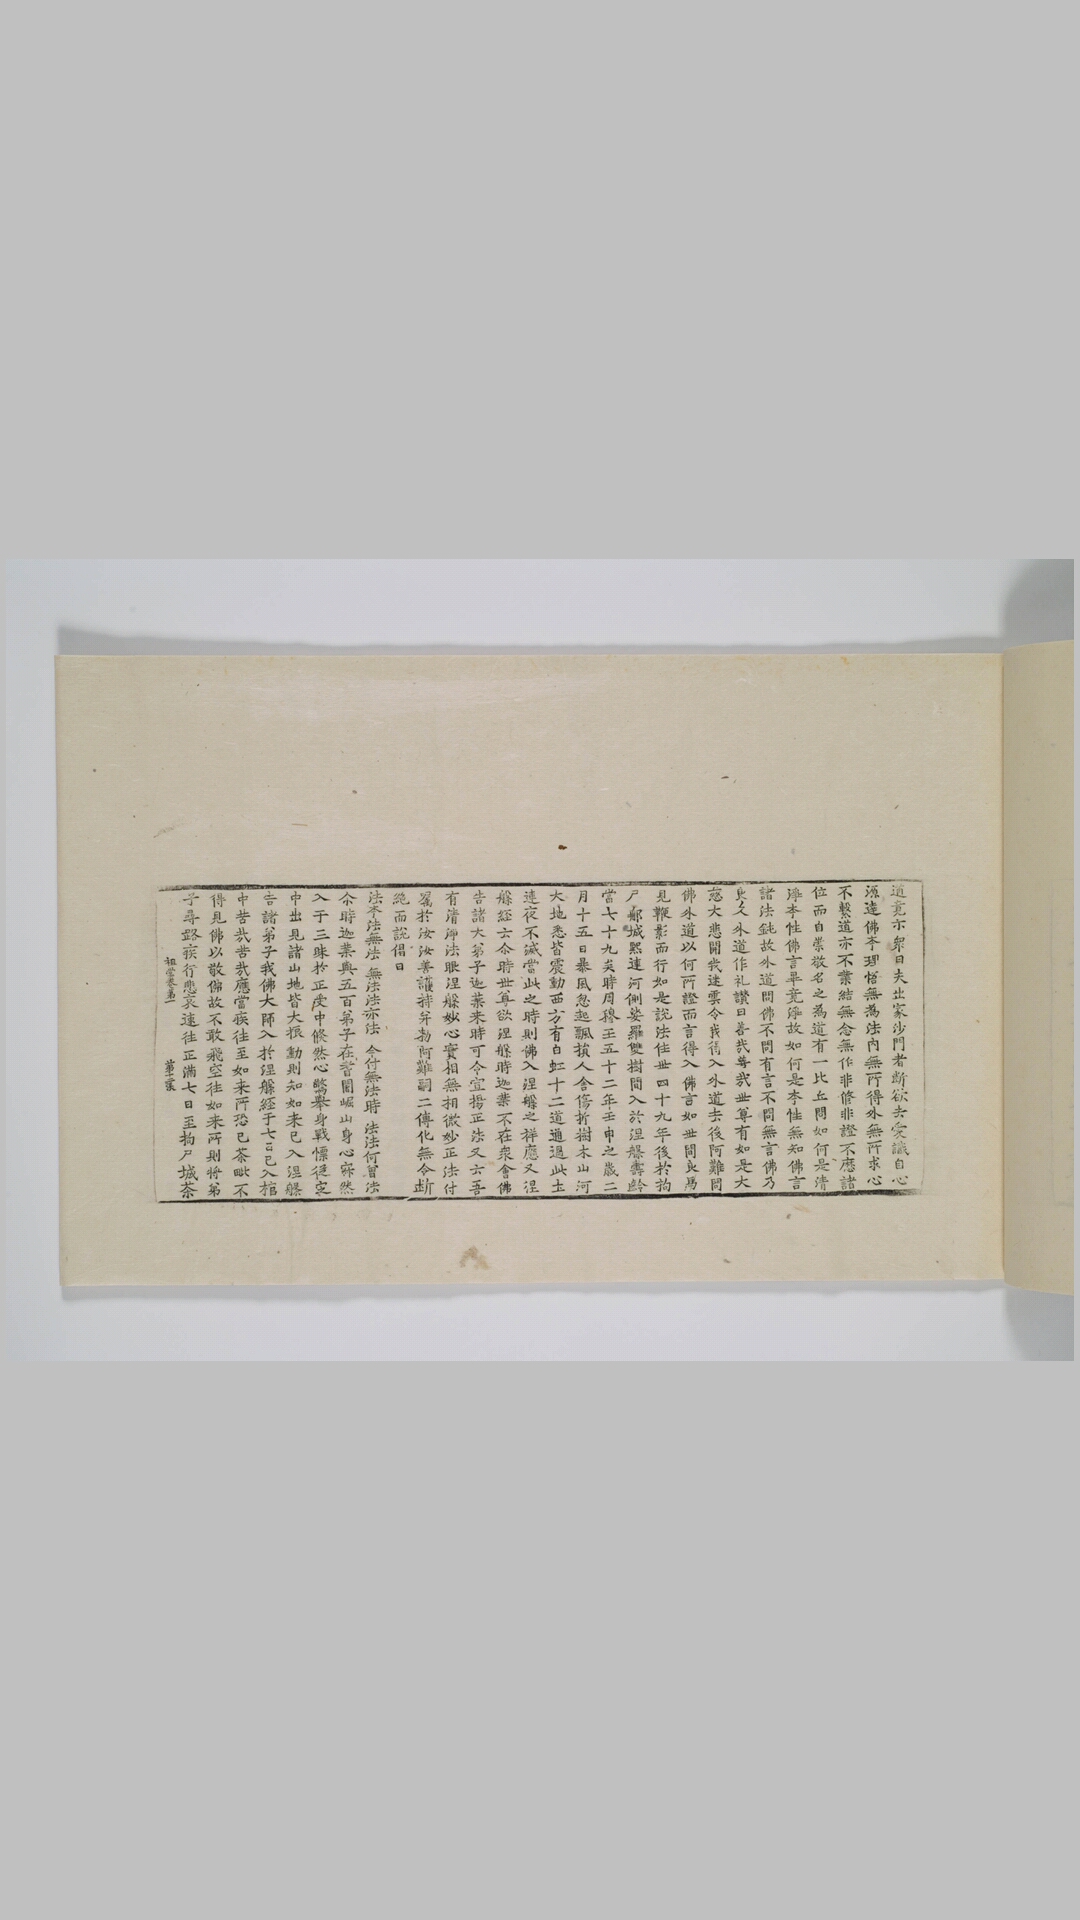 道竟示衆曰夫出家沙門者斷欲去愛識自心
源達佛本理悟無為法內無所得外無所求心
不繫道亦不業結無念無作非修非證不歷諸
位而自崇敬名之為道有一比丘問如何是清
淨本性佛言畢竟淨故如何是本性無知佛言
諸法鈍故外道問佛不問有言不問無言佛乃
良久外道作礼讚曰善哉善哉世尊有如是大
慈大悲開我迷雲令我得入外道去後阿難問
佛外道以何所證而言得入佛言如世間良馬
見鞭影而行如是說法住世四十九年後於拘
尸那城熙連河側娑羅雙樹間入於涅槃壽齡
當七十九矣時周穆王五十二年壬申之歲二
月十五日暴風忽起飄損人舍傷折樹木山河
大地悉皆震動西方有白虹十二道通過此土
連夜不滅當此之時則佛入涅槃之祥應又涅
槃經云尒時世尊欲涅槃時迦葉不在衆會佛
告諸大弟子迦葉来時可令宣揚正法又云吾
有清淨法眼涅槃妙心實相無相微妙正法付
囑於汝汝善護持并勑阿難嗣二傳化無令斷
絕而說偈曰
法本法無法　無法法亦法　今付無法時　法法何曾法
尒時迦葉與五百弟子在耆闍崛山身心寂然
入于三昧於正受中倏然心驚舉身戰慄從定
中出見諸山地皆大振動則知如来已入涅槃
告諸弟子我佛大師入於涅槃経于七日已入棺
中苦哉苦哉應當疾往至如来所恐已荼毗不
得見佛以敬佛故不敢飛空往如来所則將弟
子尋路疾行悲哀速往正滿七日至拘尸城荼
祖堂卷第一　第十二張